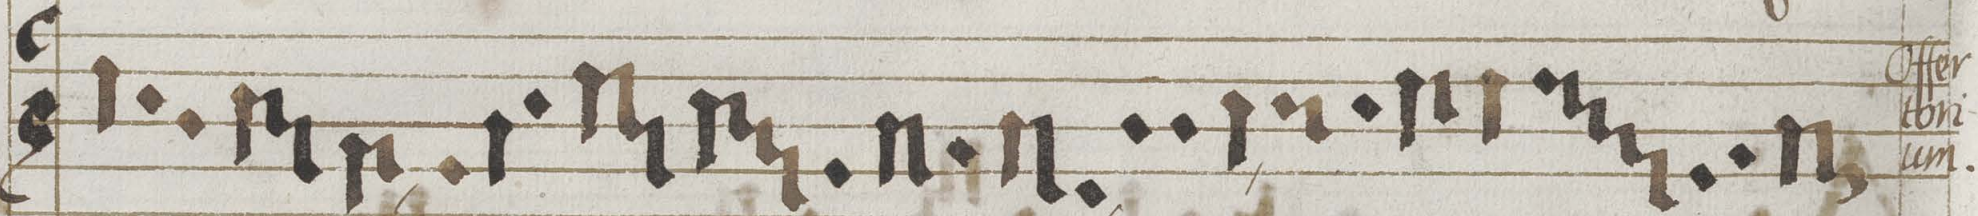 Offer
tori-
um.